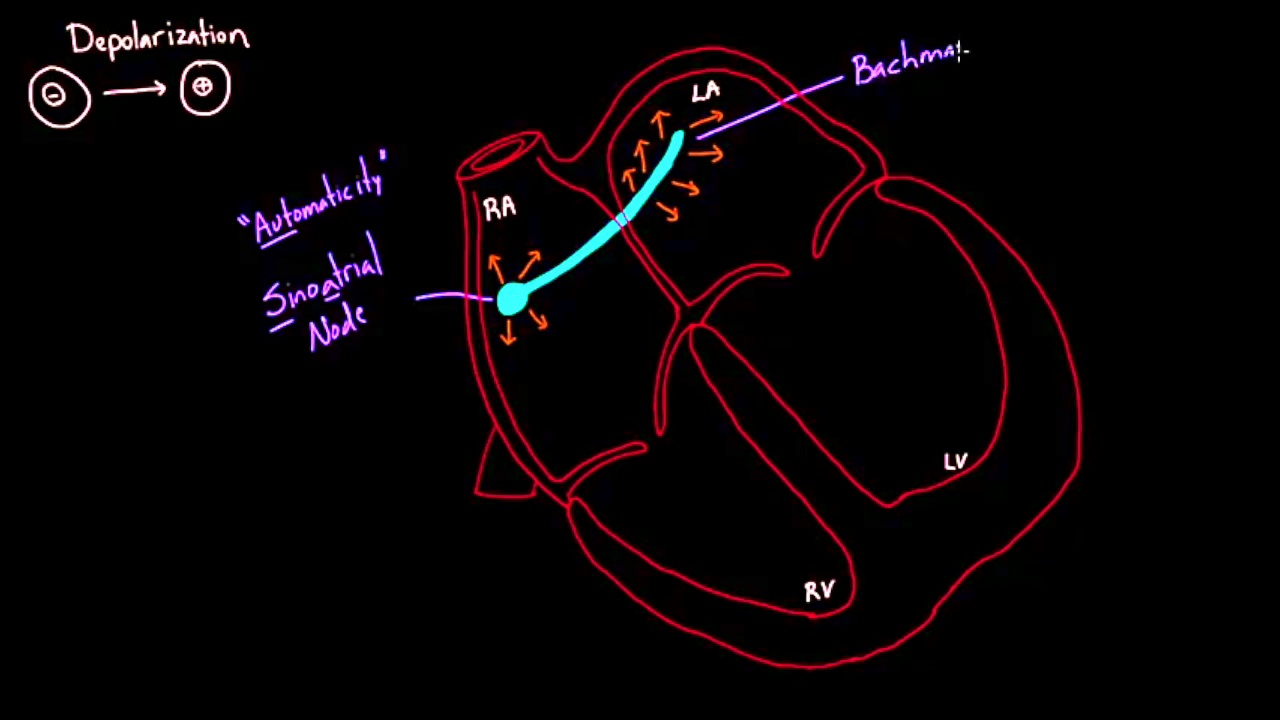 Depolarization
"Automaticity"
Sinoatrial
Node
RA
LA
RV
LV